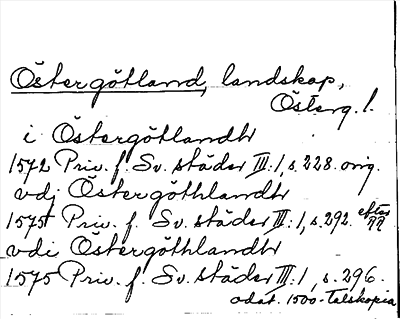 Östergötland, landskap,
Österg. l.
i Östergötlandh
1572 Priv. f. Sv. städer III:1, s. 228. orig.
vdj Östergöthlandh
1575 Priv. f. Sv. städer III:1, s. 292.
vdi Östergöthlandh
1575 Priv. f. Sv. städer III:1, s. 296.
odat. 1500-talskopia